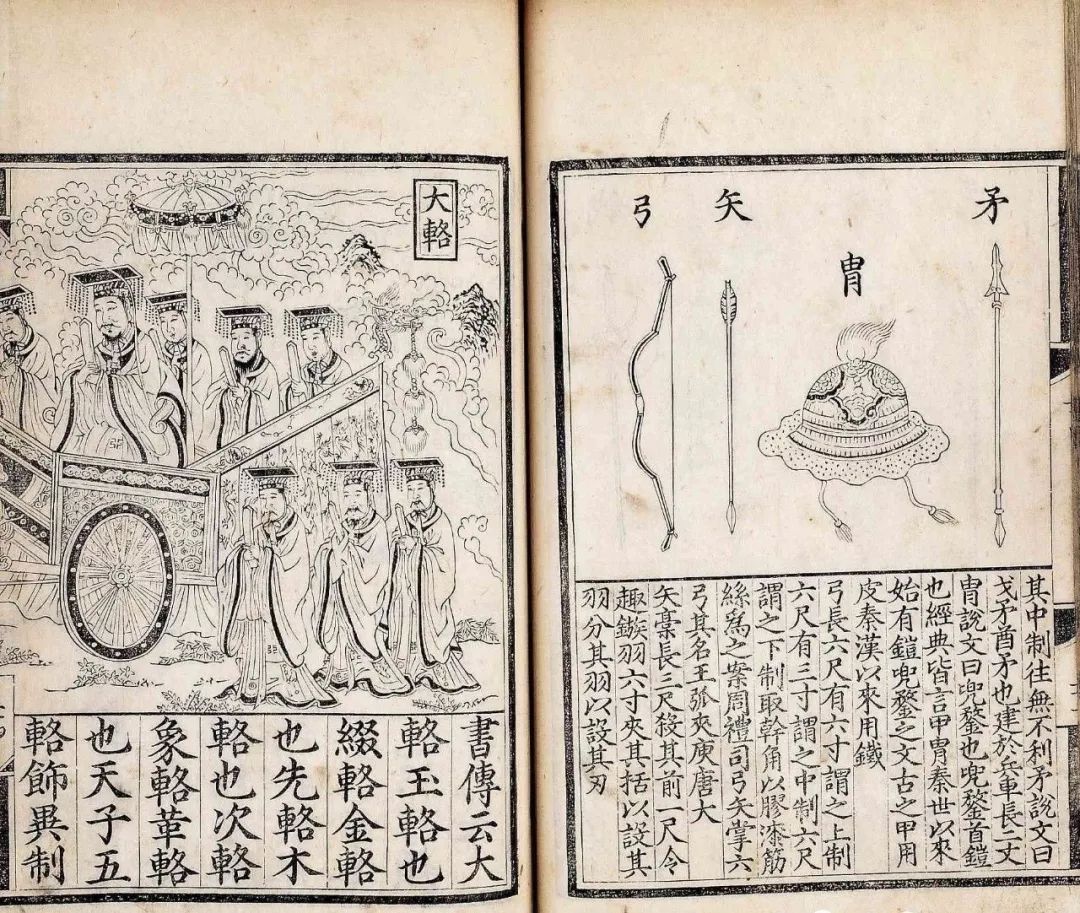 矛
冑
矢
弓
其中制往無不利矛說文曰
戈矛酋矛也建於兵車長二丈
冑說文曰兜鍪也兜鍪首鎧
也經典皆言甲冑秦世以來
始有鎧兜鍪之文古之甲用
皮秦漢以來用鐵
弓長六尺有六寸謂之上制
六尺有三寸謂之中制六尺
謂之下制取幹角以膠漆筋
絲為之案周禮司弓矢掌六
弓其名王弧夾庾唐大
矢槀長三尺殺其前一尺令
趣鏃羽六寸夾其括以設其
羽分其羽以設其刃
大輅
書傳云大
輅玉輅也
綴輅金輅
也先輅木
輅也次輅
象輅革輅
也天子五
輅飾異制